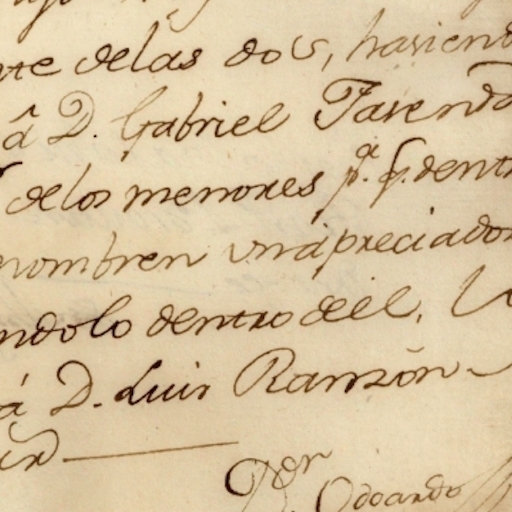 nte delas dos, hasiend
â D. Gabriel Tasend
de los menores p.ª q. dent
nombren un apreciador
ndolo dentro del,
á D. Luis Ranzôn
D.or Odoardo